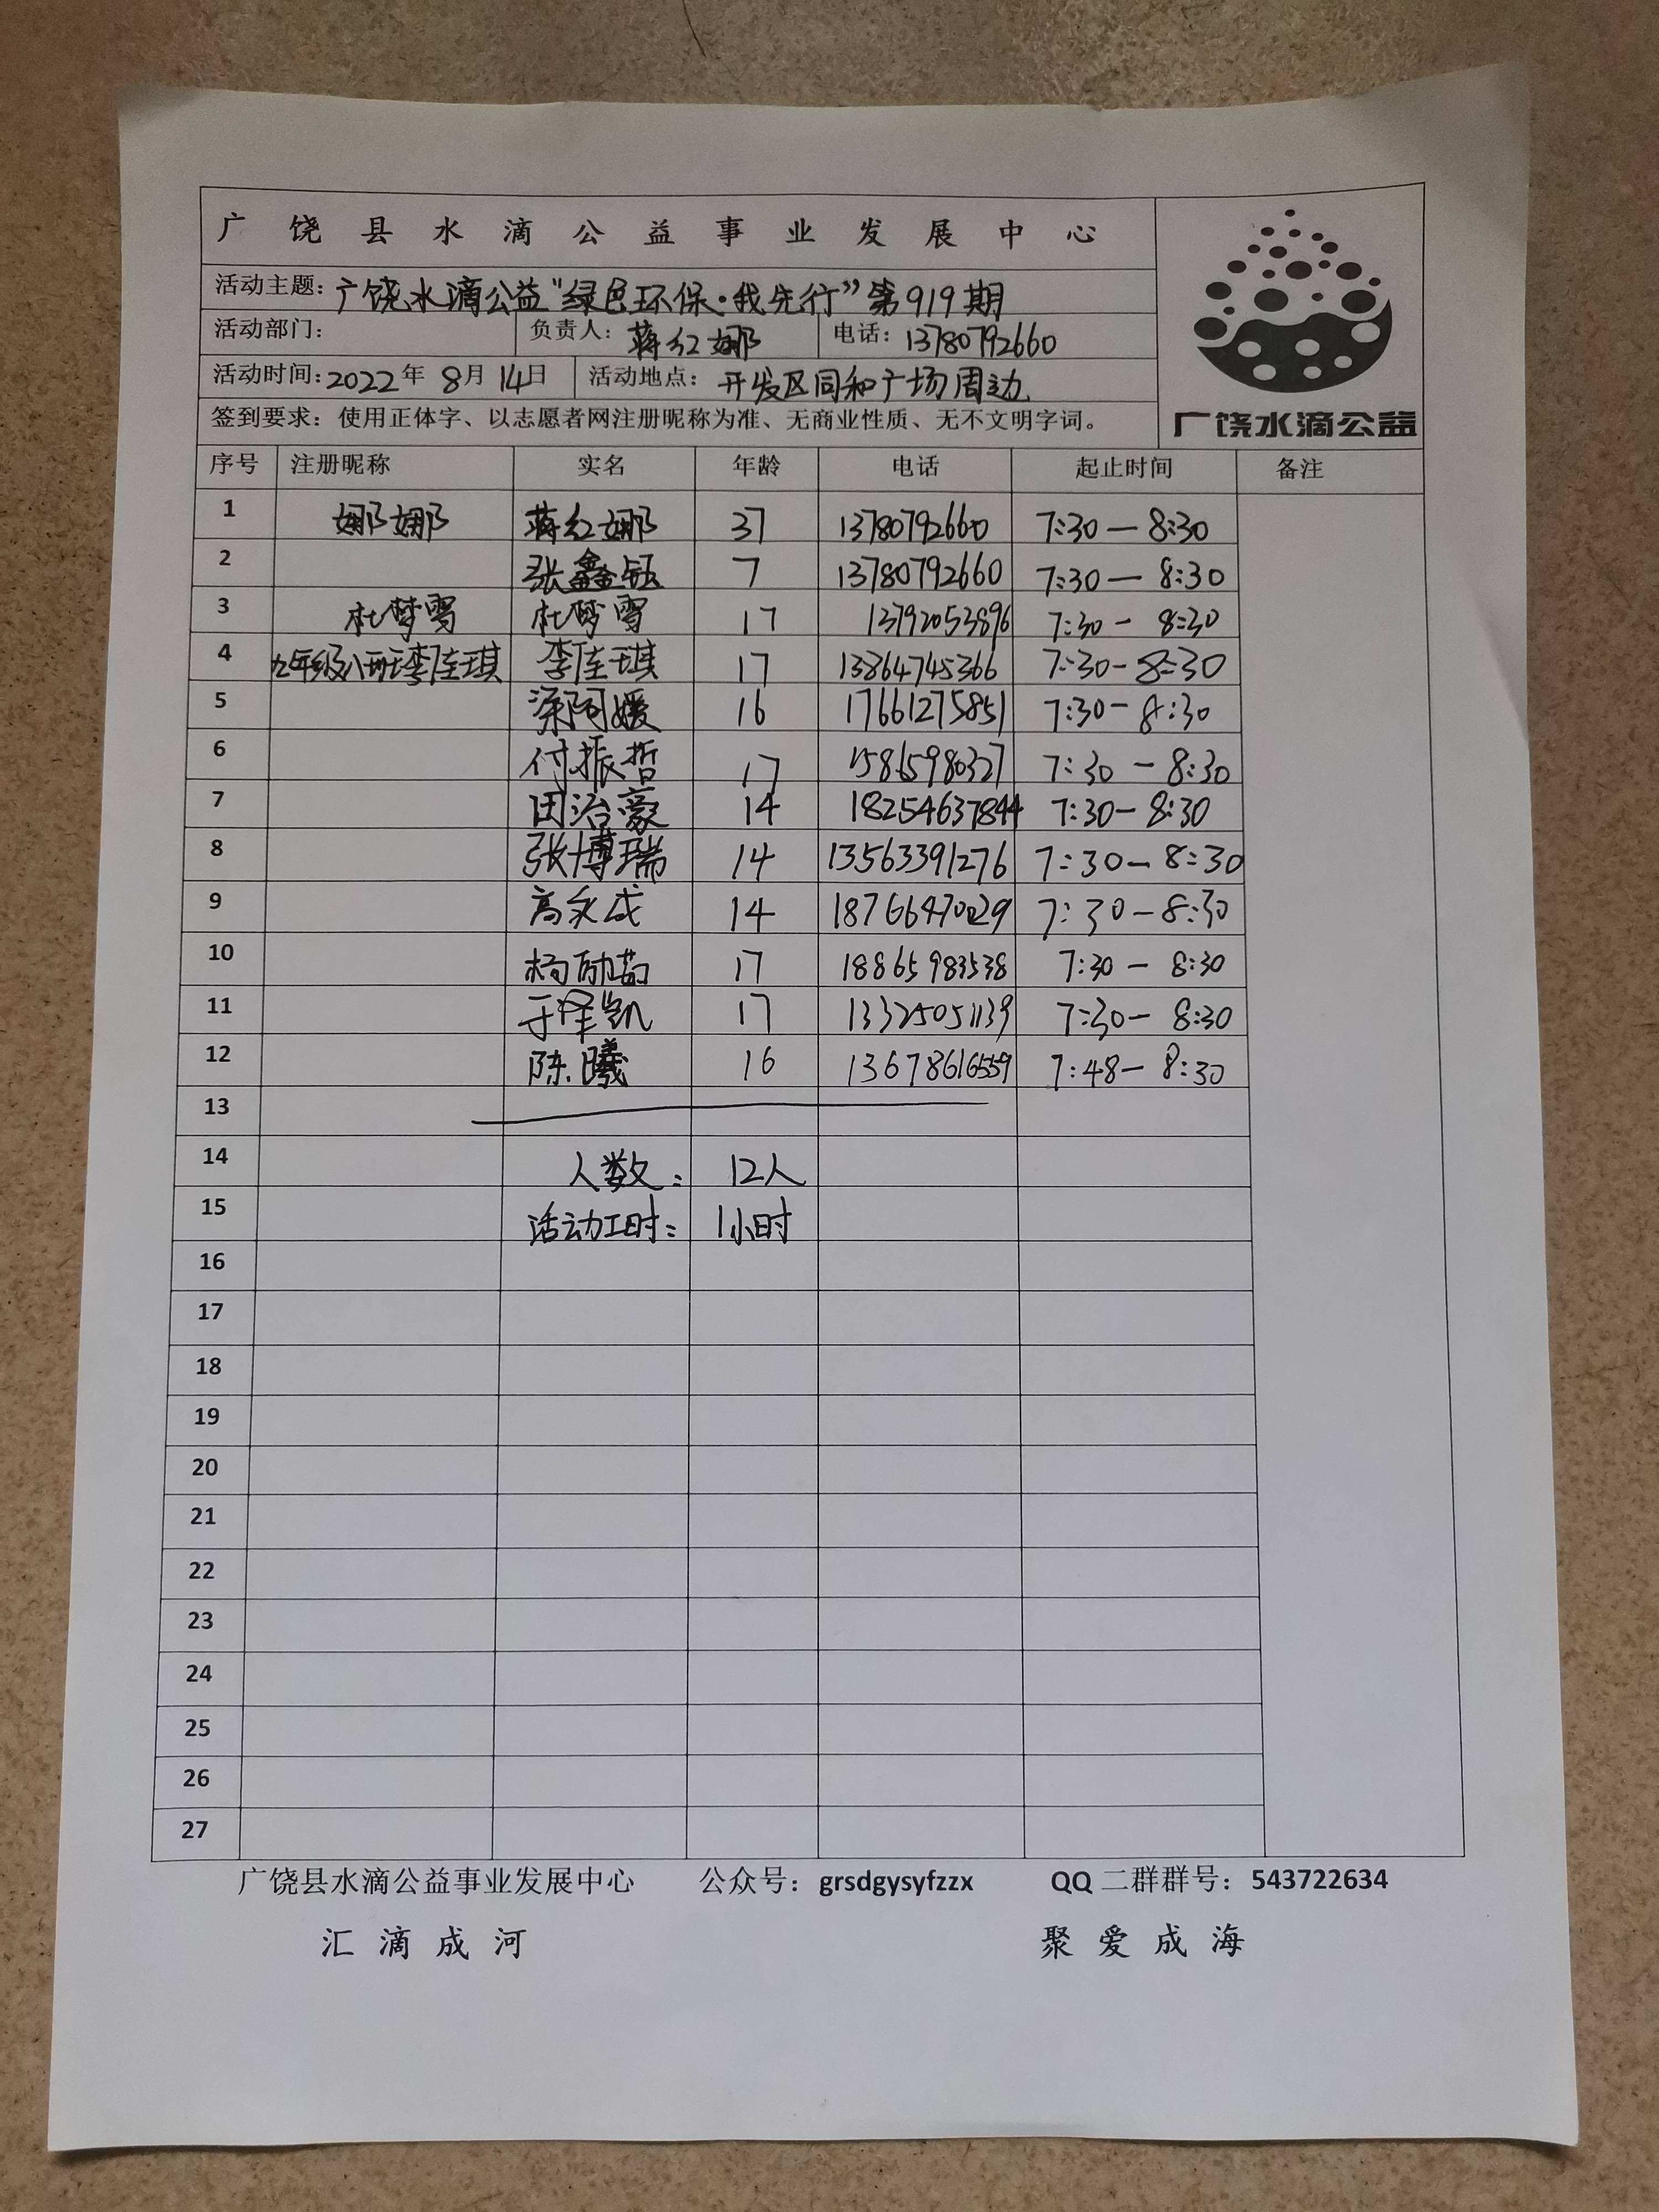 广饶县水滴公益事业发展中心
活动主题：广饶水滴公益“绿色环保·我先行”第919期
活动部门： 负责人：蒋红娜 电话：13780792660
活动时间：2022年 8月 14日 活动地点：开发区同和广场周边
签到要求：使用正体字、以志愿者网注册昵称为准、无商业性质、无不文明字词。
广饶水滴公益
序号 注册昵称 实名 年龄 电话 起止时间 备注
1 娜娜 蒋红娜 37 13780792660 7:30—8:30
2 张鑫钰 7 13780792660 7:30—8:30
3 杜梦雪 杜梦雪 17 13792053896 7:30-8:30
4 九年级八班李佳琪 李佳琪 17 13864745366 7:30-8:30
5 梁阿媛 16 17661275851 7:30-8:30
6 付振哲 17 15865980327 7:30-8:30
7 田治豪 14 18254637844 7:30-8:30
8 张博瑞 14 13563391276 7:30-8:30
9 高永成 14 7:30-8:30
10 杨 17 18865983538 7:30-8:30
11 于泽凯 17 13325051139 7:30-8:30
12 陈曦 16 13678616559 7:48-8:30
13
14 人数： 12人
15 活动工时： 1小时
16
17
18
19
20
21
22
23
24
25
26
27
广饶县水滴公益事业发展中心 公众号：grsdgysyfzzx QQ二群群号：543722634
汇滴成河 聚爱成海